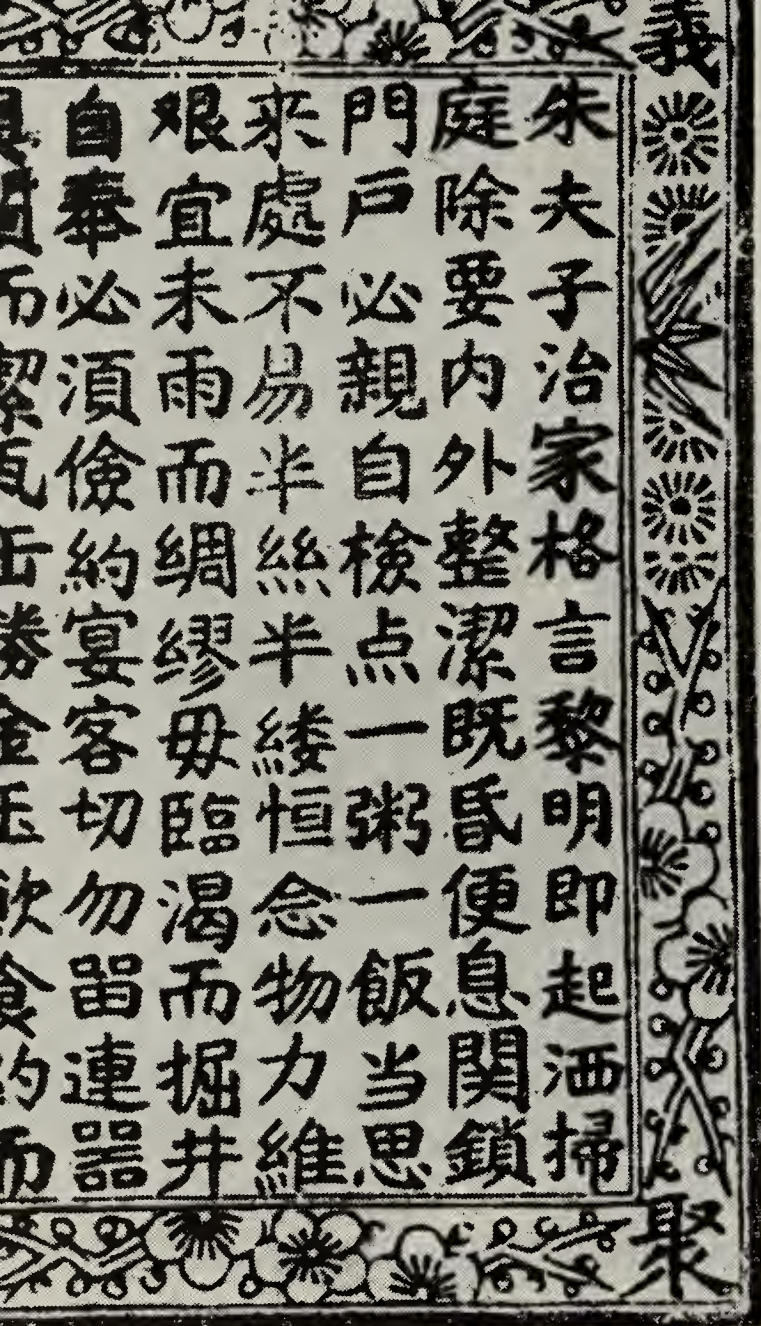 義
聚
朱夫子治家格言黎明即起洒掃
庭除要内外整潔既昏便息関鎖
門戸必親自檢点一粥一飯当思
来處不易半絲半縷恒念物力維
艱宜未雨而绸繆毋臨渴而掘井
自奉必須儉約宴客切勿畱連器
具質而潔瓦缶勝金玉飲食約而